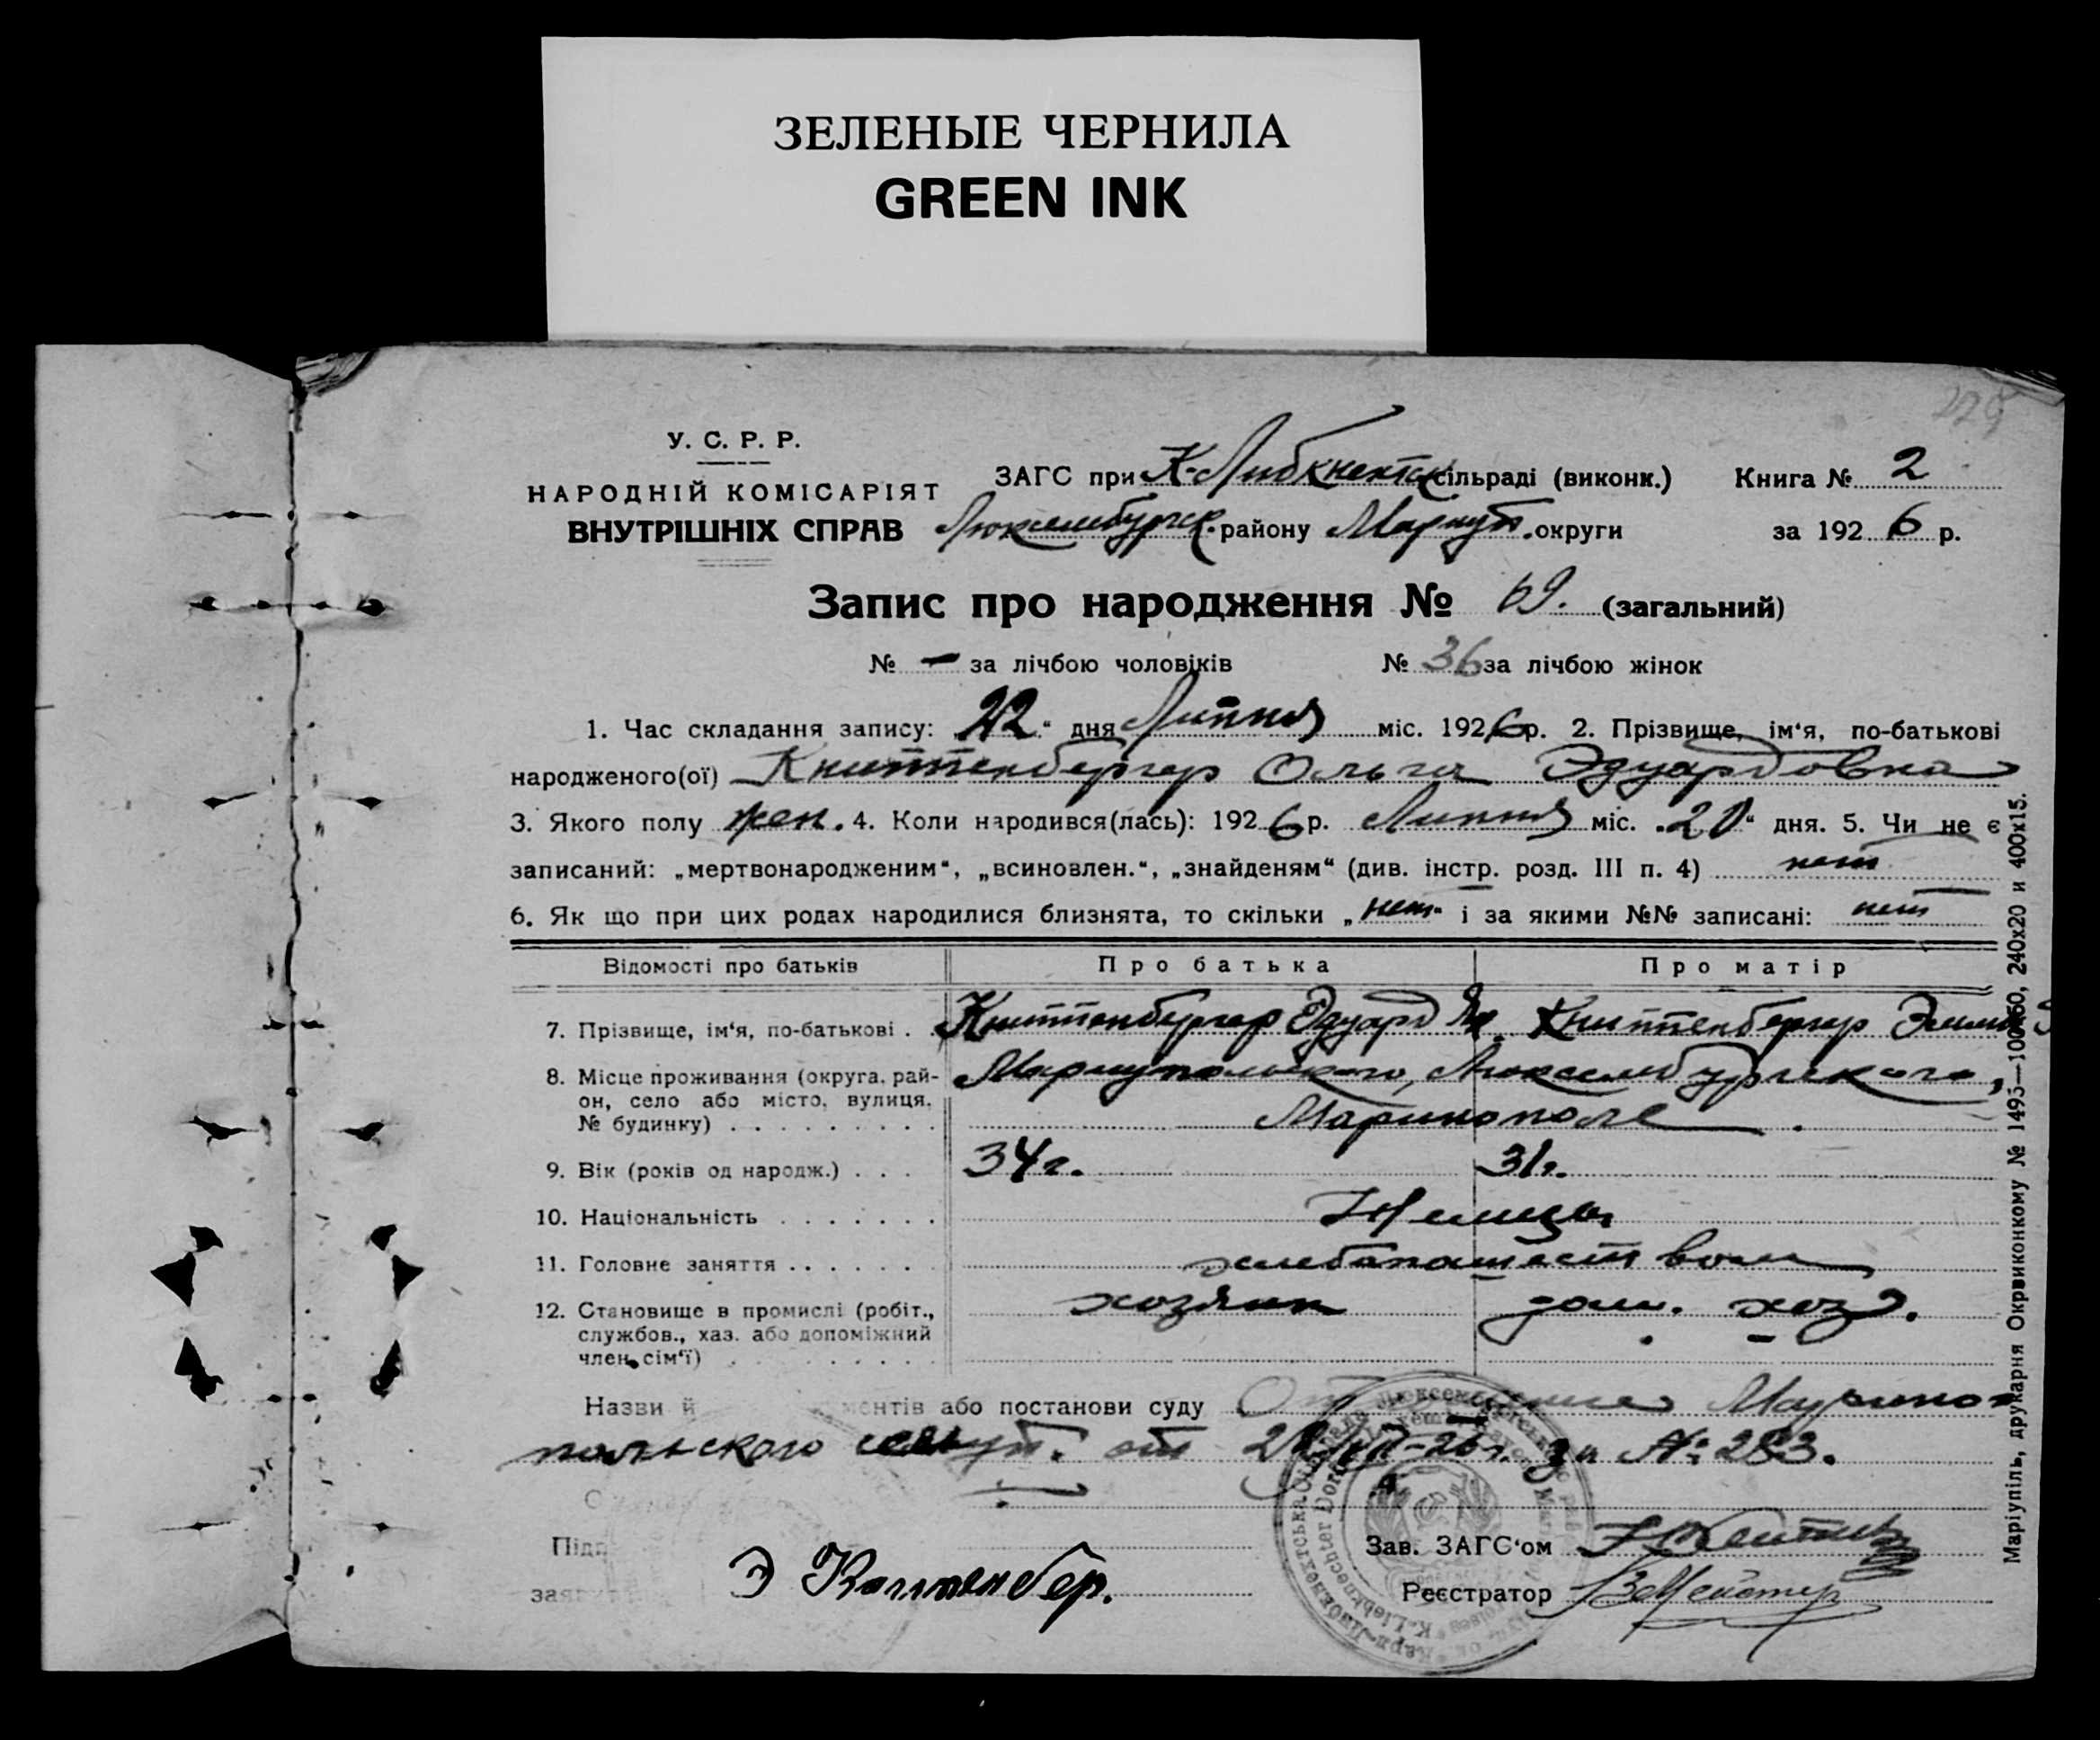 ЗЕЛЕНЫЕ ЧЕРНИЛА
GREEN INK
У. С. Р. Р.
НАРОДНІЙ КОМІСАРІЯТ
ВНУТРІШНІХ СПРАВ
ЗАГС при К-Либкнехтск сільраді (виконк.) Книга № 2
Люксембургск. району Мариуп. округи за 1926 р.
Запис про народження № 69. (загальний)
№ – за лічбою чоловіків № 36 за лічбою жінок
1. Час складання запису: „22“ дня Липня міс. 1926 р. 2. Прізвище, ім‘я, по-батькові
народженого(ої) Книттенбергер Ольга Эдуардовна
3. Якого полу жен. 4. Коли народився(лась): 1926 р. Липня міс. „20“ дня. 5. Чи не є
записаний: „мертвонародженим“, „всиновлен.“, „знайденям“ (див. інстр. розд. III п. 4) нет
6. Як що при цих родах народилися близнята, то скільки „нет“ і за якими №№ записані: нет
Відомості про батьків Про батька Про матір
7. Прізвище, ім‘я, по-батькові . . Книттенбергер Эдуард Книттенбергер
8. Місце проживання (округа, рай- Мариупольского, Люксембургского,
он, село або місто, вулиця, Маринополе
№ будинку) . . . . . . . . .
9. Вік (років од народж.) . . . 34 г. 31 г.
10. Національність . . . . . . . Немцы
11. Головне заняття . . . . . . . хлебопашеством
12. Становище в промислі (робіт., хозяин дом. хоз.
службов., хаз. або допоміжний
член сім‘ї) . . . . . . . . .
Назви й ментів або постанови суду Марино-
польского от за № 283.
Підп
Э Книттенбер.
Зав. ЗАГС‘ом
Реєстратор Мейстер
Маріупіль, друкарня Окрвиконкому № 1495—100х50, 240х20 и 400х15.